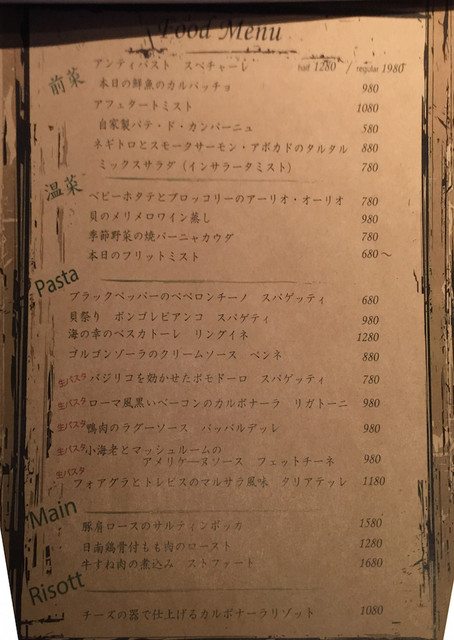 Food Menu
前菜
アンティパスト スペチャーレ half 1280 / regular 1980
本日の鮮魚のカルパッチョ 980
アフェタートミスト 1080
自家製パテ・ド・カンパーニュ 580
ネギトロとスモークサーモン・アボカドのタルタル 880
ミックスサラダ（インサラータミスト） 780
温菜
ベビーホタテとブロッコリーのアーリオ・オーリオ 780
貝のメリメロワイン蒸し 980
季節野菜の焼バーニャカウダ 780
本日のフリットミスト 680～
Pasta
ブラックペッパーのペペロンチーノ スパゲッティ 680
貝祭り ボンゴレビアンコ スパゲティ 980
海の幸のペスカトーレ リングイネ 1280
ゴルゴンゾーラのクリームソース ペンネ 880
生パスタ バジリコを効かせたポモドーロ スパゲッティ 780
生パスタ ローマ風黒いベーコンのカルボナーラ リガトーニ 980
生パスタ 鴨肉のラグーソース パッパルデッレ 980
生パスタ 小海老とマッシュルームの
アメリケーヌソース フェットチーネ 980
生パスタ フォアグラとトレビスのマルサラ風味 タリアテッレ 1180
Main
豚肩ロースのサルティンボッカ 1580
日南鶏骨付もも肉のロースト 1280
牛すね肉の煮込み ストファート 1680
Risott
チーズの器で仕上げるカルボナーラリゾット 1080